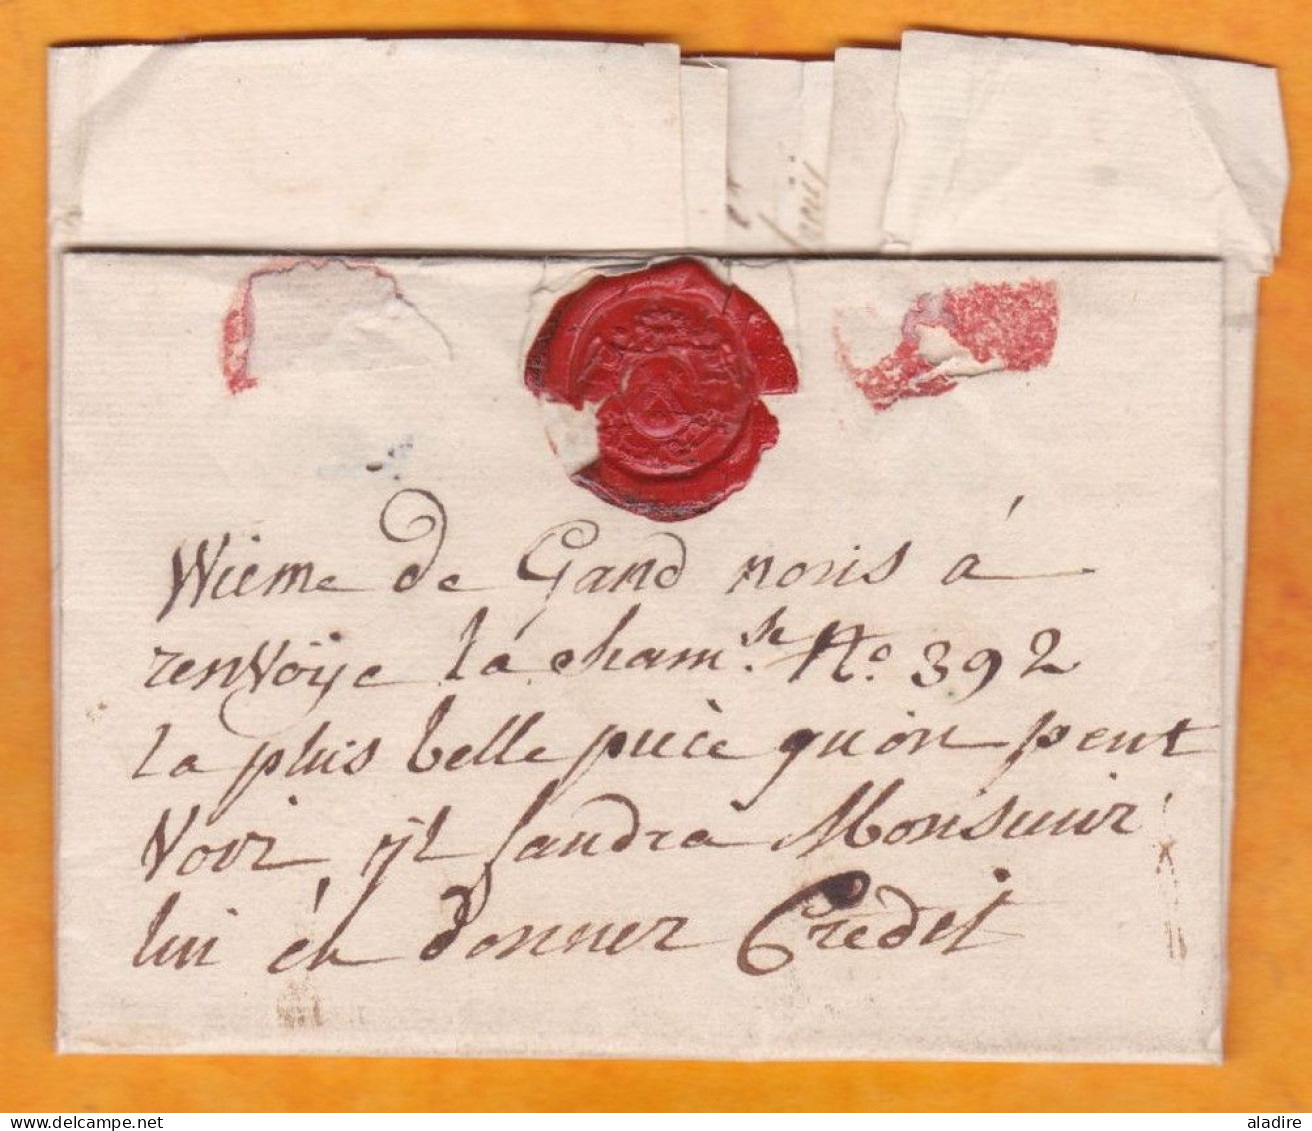 Wième de Gand nous à
renvoÿe la cham.se No. 392
la plus belle pièce qu'on peut
Voir, ÿl faudra Monsieur
lui én donner Credit
delcampe.net
aladire